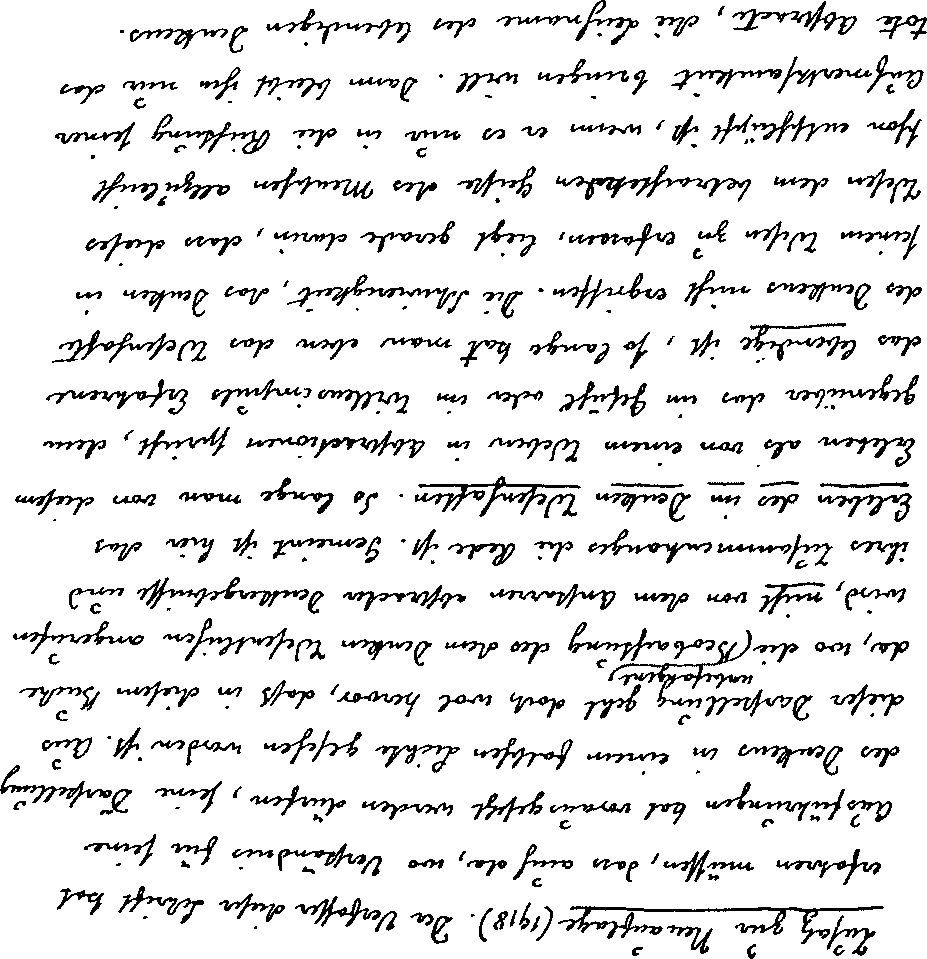 Zusatz zur Neuauflage (1918). Der Verfasser dieser Schrift hat
erfahren müssen, dass auch da, wo Verständnis für seine
Ausführungen hat vorausgesetzt werden dürfen, seine Darstellung
des Denkens in einem falschen Lichte gesehen worden ist. Aus
dieser Darstellung geht doch wol hervor, daß in diesem Buche
unbefangene
da, wo die (Beobachtung des dem Denken Wesentlichen angerufen
wird, nicht von dem Anstarren abstracter Denkergebnisse und
ihres Zusammenhanges die Rede ist. Gemeint ist hier das
Erleben des im Denken Wesenhaften. So lange man von diesem
Erleben als von einem Weben in Abstractionen spricht, dem
gegenüber das im Gefühl oder im Willensimpuls Erfahrene
das lebendige ist, so lange hat man eben das Wesenhafte
des Denkens nicht ergriffen. Die Schwierigkeit, das Denken in
seinem Wesen zu erfassen, liegt gerade darin, dass dieses
Wesen dem betrachtenden Geiste des Menschen allzuleicht
schon entschlüpft ist, wenn er es nur in die Richtung seiner
Aufmerksamkeit bringen will. Dann bleibt ihm nur das
tote Abstracte, die Leichname des lebendigen Denkens.